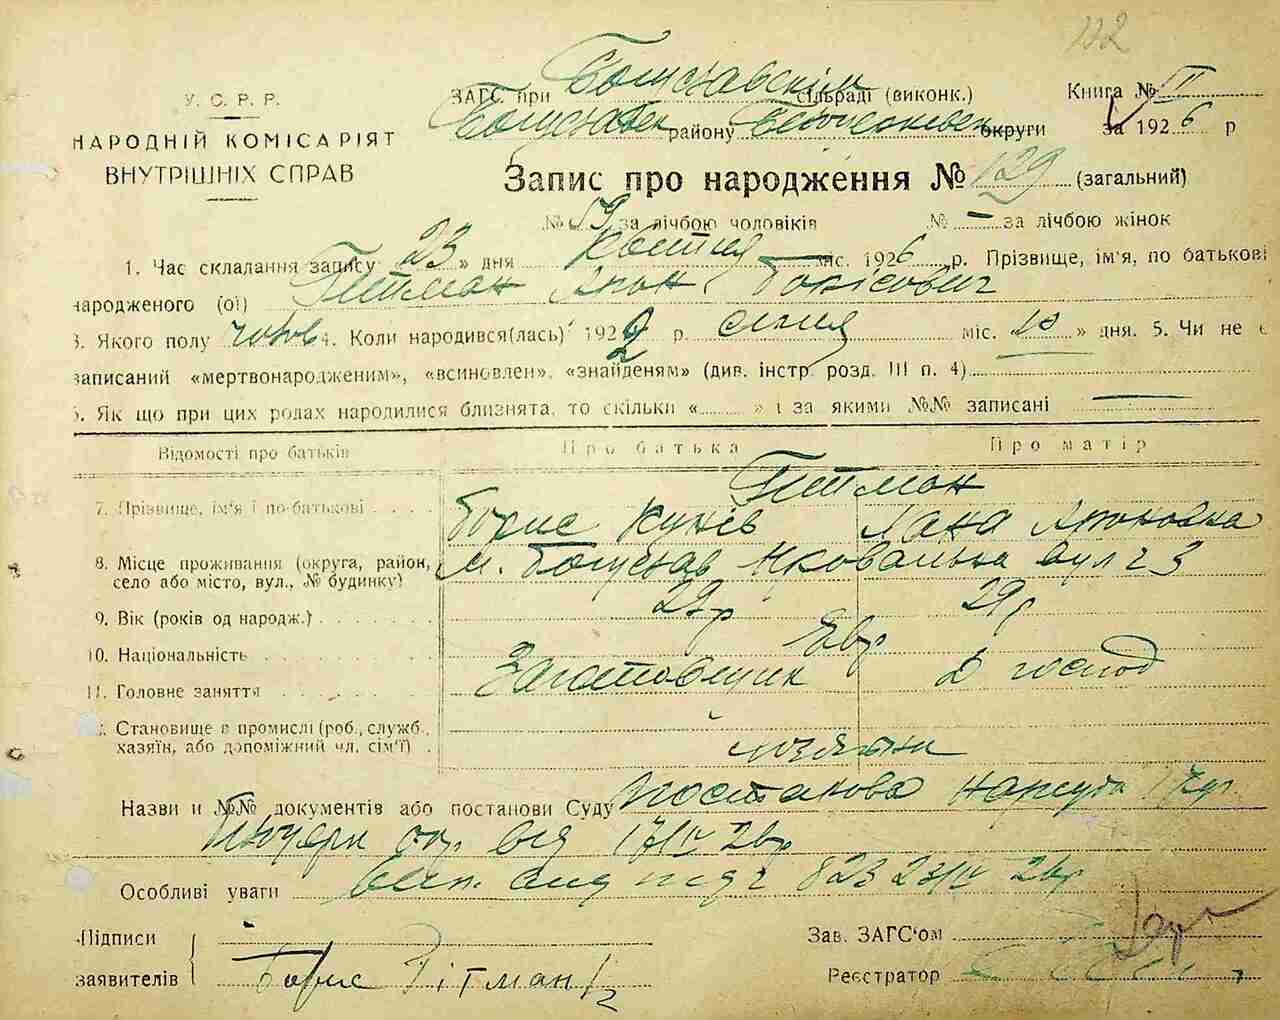 112
У. С. Р. Р.
НАРОДНІЙ КОМІСАРІЯТ
ВНУТРІШНІХ СПРАВ
ЗАГС при Богуславскім сільраді (виконк.) Книга № II
Богуславск району Білоцерківск округи за 1926 р
Запис про народження № 129 (загальний)
№ 59 за лічбою чоловіків № — за лічбою жінок
1. Час складання запису 23 » дня квітня міс. 1926 р. Прізвище, ім'я, по батькові
народженого (ої) Гитман Арон Борісович
3. Якого полу чолов 4. Коли народився(лась) 192 р. січня міс. 10 » дня. 5. Чи не є
записаний «мертвонародженим», «всиновлен», «знайденям» (див. інстр. розд. III п. 4)
6. Як що при цих родах народилися близнята, то скільки « » і за якими №№ записані —
Відомості про батьків Про батька Про матір
7. Прізвище, ім'я і по-батькові Гитман
Борис Хунів Хана Ароновна
8. Місце проживання (округа, район, село або місто, вул., № будинку) м. Богуслав вул 23
9. Вік (років од народж.) 29р 29р
10. Національність Євр
11. Головне заняття Заготовщик Д господ
Становище в промислі (роб., служб., хазяїн, або допоміжний чл. сім'ї)
Назви и №№ документів або постанови Суду Постанова Нарсуда
від 17/IV 26р
Особливі уваги 823 23/IV 26р
Підписи заявителів Борис Гітман
Зав. ЗАГС'ом
Реєстратор